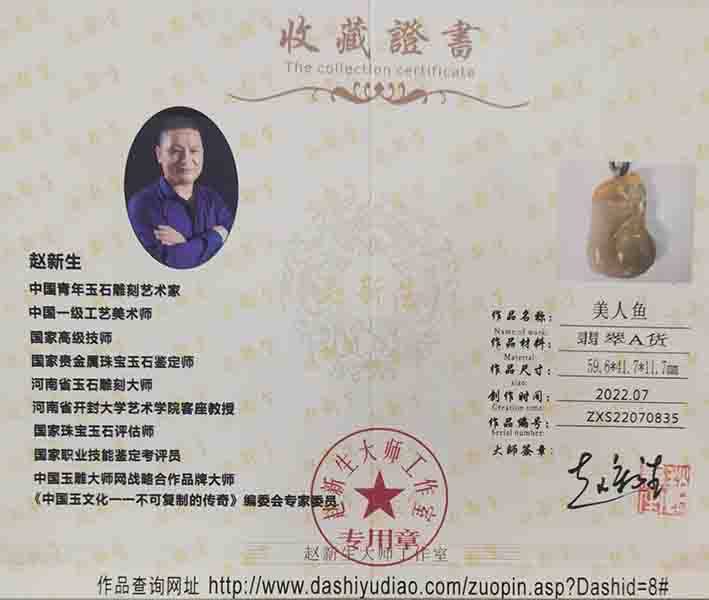 收藏證書
The collection certificate
赵新生
中国青年玉石雕刻艺术家
中国一级工艺美术师
国家高级技师
国家贵金属珠宝玉石鉴定师
河南省玉石雕刻大师
河南省开封大学艺术学院客座教授
国家珠宝玉石评估师
国家职业技能鉴定考评员
中国玉雕大师网战略合作品牌大师
《中国玉文化一一不可复制的传奇》编委会专家委员
作品名称： 美人鱼
Name of work:
作品材料： 翡翠A货
Material:
作品尺寸： 59.6*41.7*11.7mm
size:
创作时间： 2022.07
Creation time:
作品编号： ZXS22070835
Serial number:
大师签章：
赵新生
赵新生大师工作室
专用章
赵新生大师工作室
作品查询网址 http://www.dashiyudiao.com/zuopin.asp?Dashid=8#